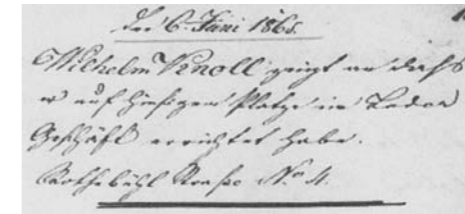 Den 6. Juni 1865.
Wilhelm Knoll zeigt an daß
er auf hiesigem Platze ein Leder
Geschäft errichtet habe.
Rothebühl Straße No. 4.